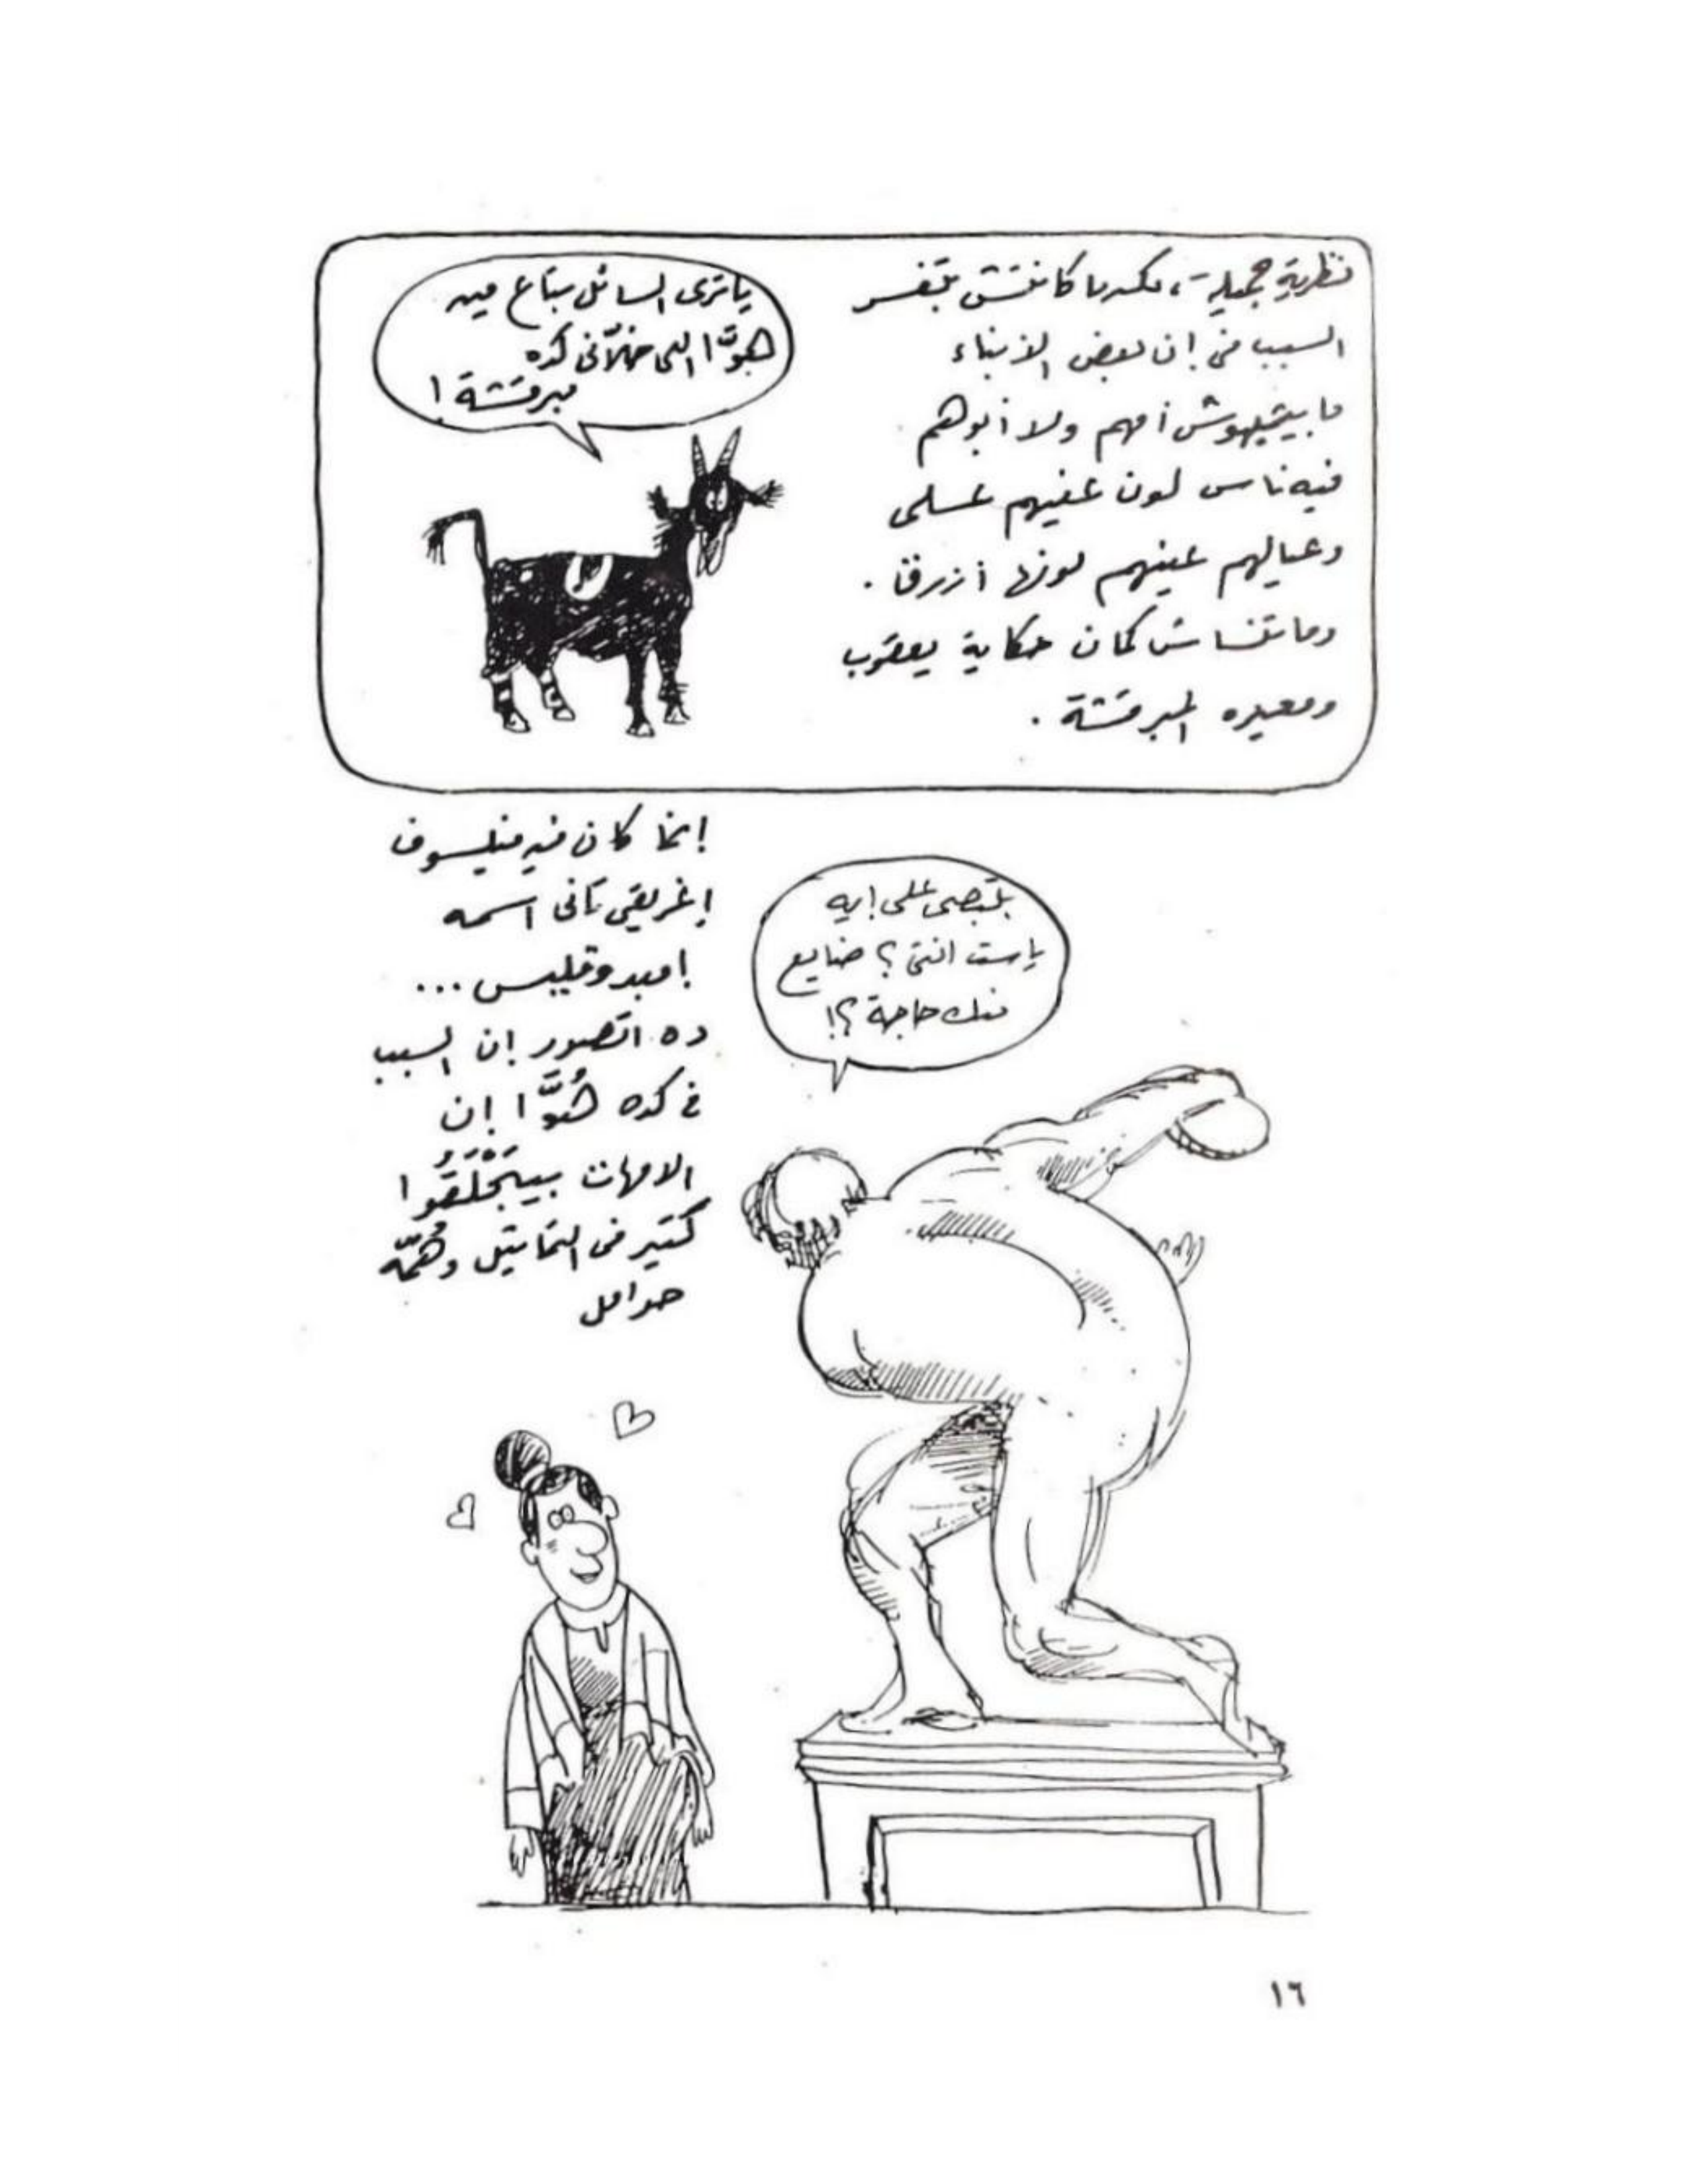 نظرية جميلة، لكنها كانتش بتفسر
السبب فى إن بعض الأبناء
ما بيشبهوش أمهم ولا أبوهم
فيه ناس لون عنيهم عسلى
وعيالهم عينهم لونها أزرق.
وما تنساش كمان حكاية يعقوب
ومعيزه المبرقشة.
يا ترى السائل بتاع مين
هوَّا اللى خلّانى كده
مبرقشة!
إنما كان فيه فيلسوف
إغريقى تانى اسمه
إمبدوقليس...
ده اتصور إن السبب
فى كده هُوَّا إن
الامهات بيبَحْلَقُوا
كتير فى التماثيل وهُمّه
حوامل
بتبصى على إيه
يا ست انتى؟ ضايع
منك حاجة؟!
١٦